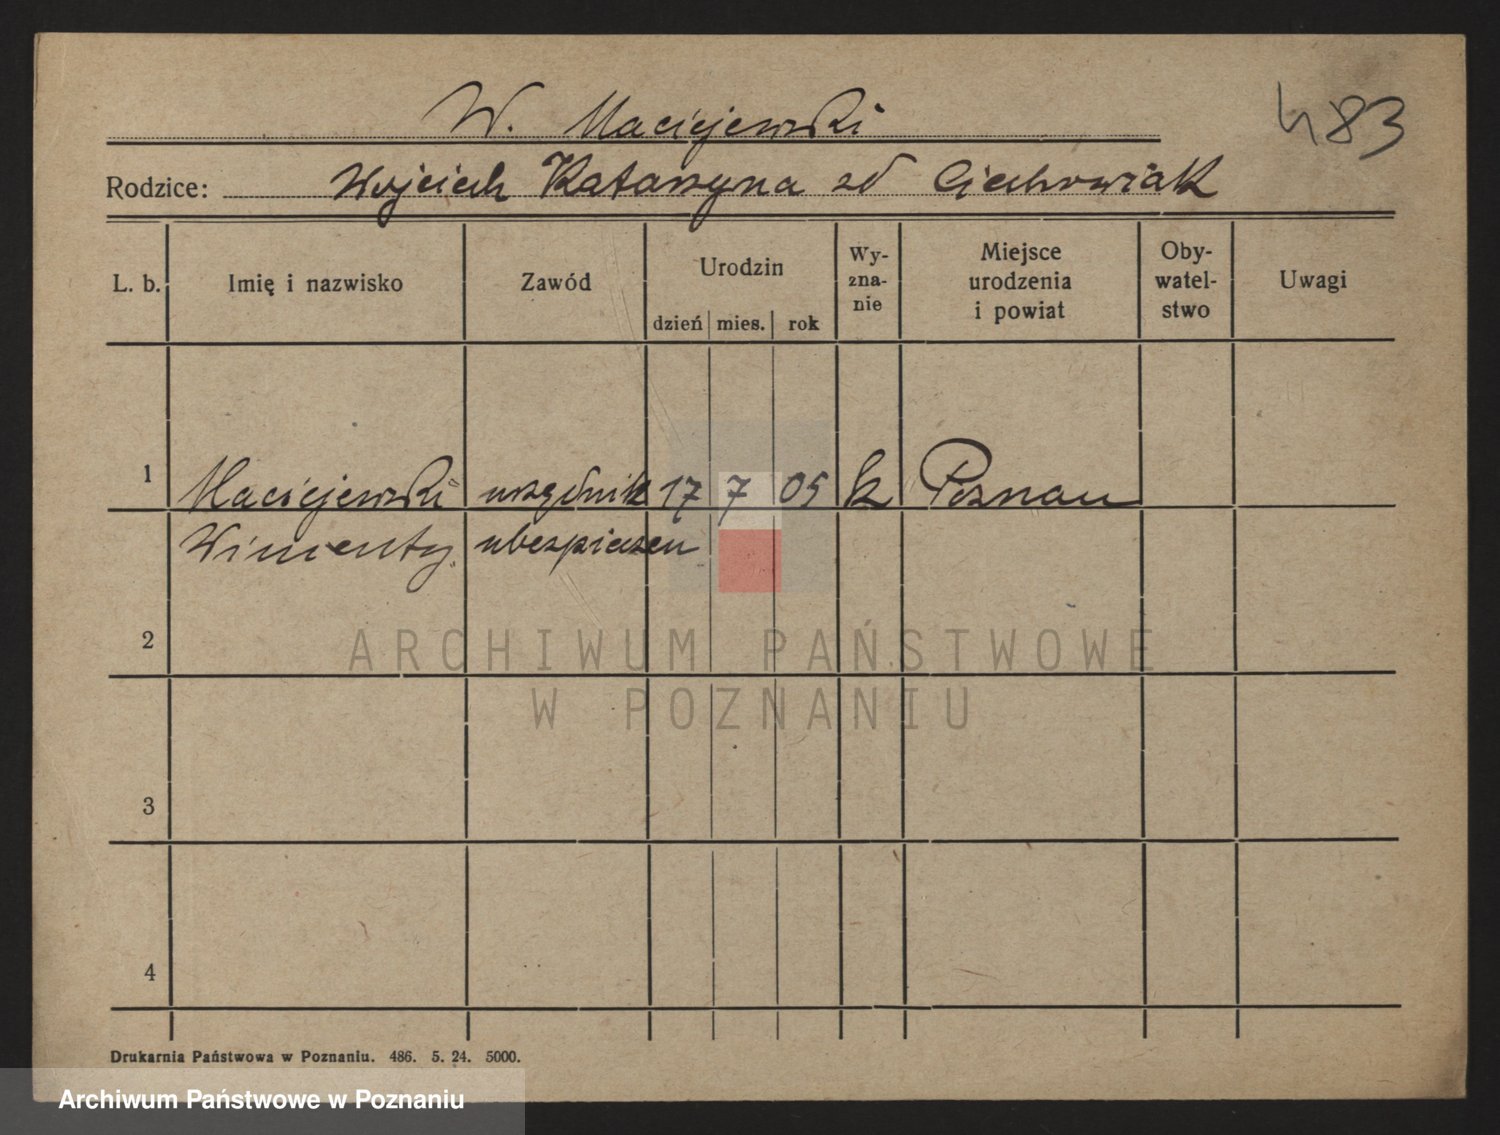 W. Maciejewski
483
Rodzice: Wojciech Katarzyna zd Ciechowiak
L. b. Imię i nazwisko Zawód Urodzin dzień mies. rok Wy-zna-nie Miejsce urodzenia i powiat Oby-watel-stwo Uwagi
1 Maciejewski urzędnik 17 7 05 k Poznań
Wincenty ubezpieczeń
2
ARCHIWUM PAŃSTWOWE
W POZNANIU
3
4
Drukarnia Państwowa w Poznaniu. 486. 5. 24. 5000.
Archiwum Państwowe w Poznaniu